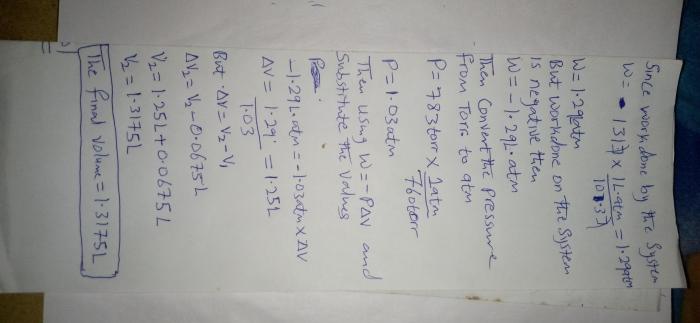 Since workdone by the System
W = 131J × 1L-atm / 101.3J = 1.29atm
W = 1.29atm
But workdone on the System
is negative then
W = -1.29L.atm
Then Convert the Pressure
from Torr to atm
P = 783torr × 1atm / 760torr
P = 1.03atm
Then using W = -PΔV and
Substitute the Values
-1.29L.atm = -1.03atm × ΔV
ΔV = 1.29 / 1.03 = 1.25L
But ΔV = V2 - V1
ΔV2 = V2 - 0.0675L
V2 = 1.25L + 0.0675L
V2 = 1.3175L
The final Volume = 1.3175L